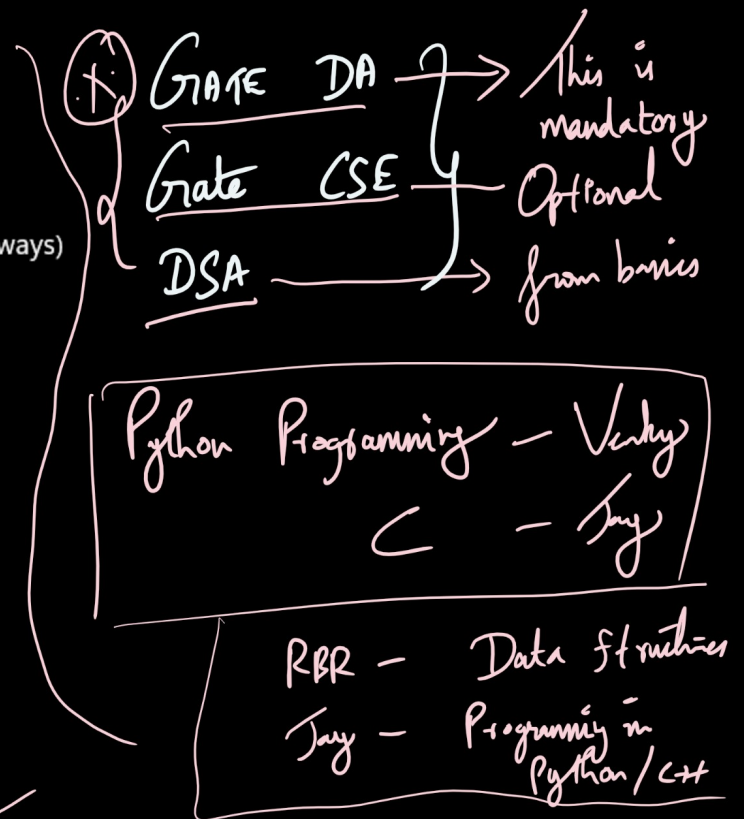 GATE DA → This is
mandatory
Gate CSE — Optional
ways)
DSA → from basics
Python Programming – Venky
C – Jay
RBR – Data Structures
Jay – Programmig in
Python/C++